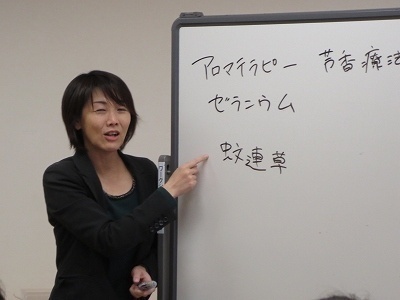 アロマテラピー 芳香療法
ゼラニウム
蚊連草